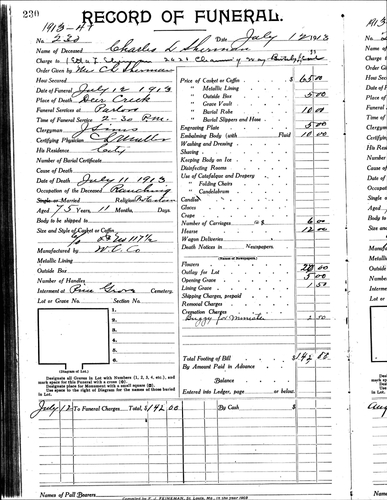 230
1913-47
RECORD OF FUNERAL.
No 230 Date July 12 1913
Name of Deceased Charles L Sherman
Charge to
Order Given by Mrs C Sherman
How Secured
Date of Funeral July 12 1913
Place of Death Deer Creek
Funeral Services at Parlors
Time of Funeral Service 2-30 P.M.
Clergyman J Sims
Certifying Physician
His Residence City
Number of Burial Certificate
Cause of Death
Date of Death July 11 1913
Occupation of the Deceased Ranching
Single or Married Religion
Aged 75 Years, 11 Months, Days.
Body to be shipped to
Size and Style of Casket or Coffin
Manufactured by W. C. Co
Metallic Lining
Outside Box
Number of Handles
Interment at Pine Grove Cemetery.
Lot or Grave No. Section No.
1.
2.
3.
4.
5.
6.
(Diagram of Lot.)
Designate all Graves in Lot with Numbers (1, 2, 3, 4, etc.), and
mark space for this Funeral with a cross (X).
Designate place of Monument with a small square (□).
Use space to the right of Diagram for the names of those buried
in Lot.
Price of Casket or Coffin $ 65 00
" Metallic Lining
" Outside Box 5 00
" Grave Vault
" Burial Robe 10 00
" Burial Slippers and Hose
Engraving Plate 5 00
Embalming Body (with Fluid 10 00
Washing and Dressing
Shaving
Keeping Body on Ice
Disinfecting Rooms
Use of Catafalque and Drapery
" Folding Chairs
" Candelabrum
Candles
Gloves
Crape
Number of Carriages @ $ 6 00
Hearse 12 00
Wagon Deliveries
Death Notices in Newspapers.
(Names of Newspapers.)
Flowers
Outlay for Lot 20 00
Opening Grave 5 00
Lining Grave 1 50
Shipping Charges, prepaid
Removal Charges
Cremation Charges
Buggy for Minister 2 50
Total Footing of Bill $ 142 00
By Amount Paid in Advance
Balance
Entered into Ledger, page or below.
July 12 To Funeral Charges Total, $ 142 00 By Cash $
Names of Pall Bearers
Compiled by F. J. FEINEMAN, St. Louis, Mo., in the year 1902